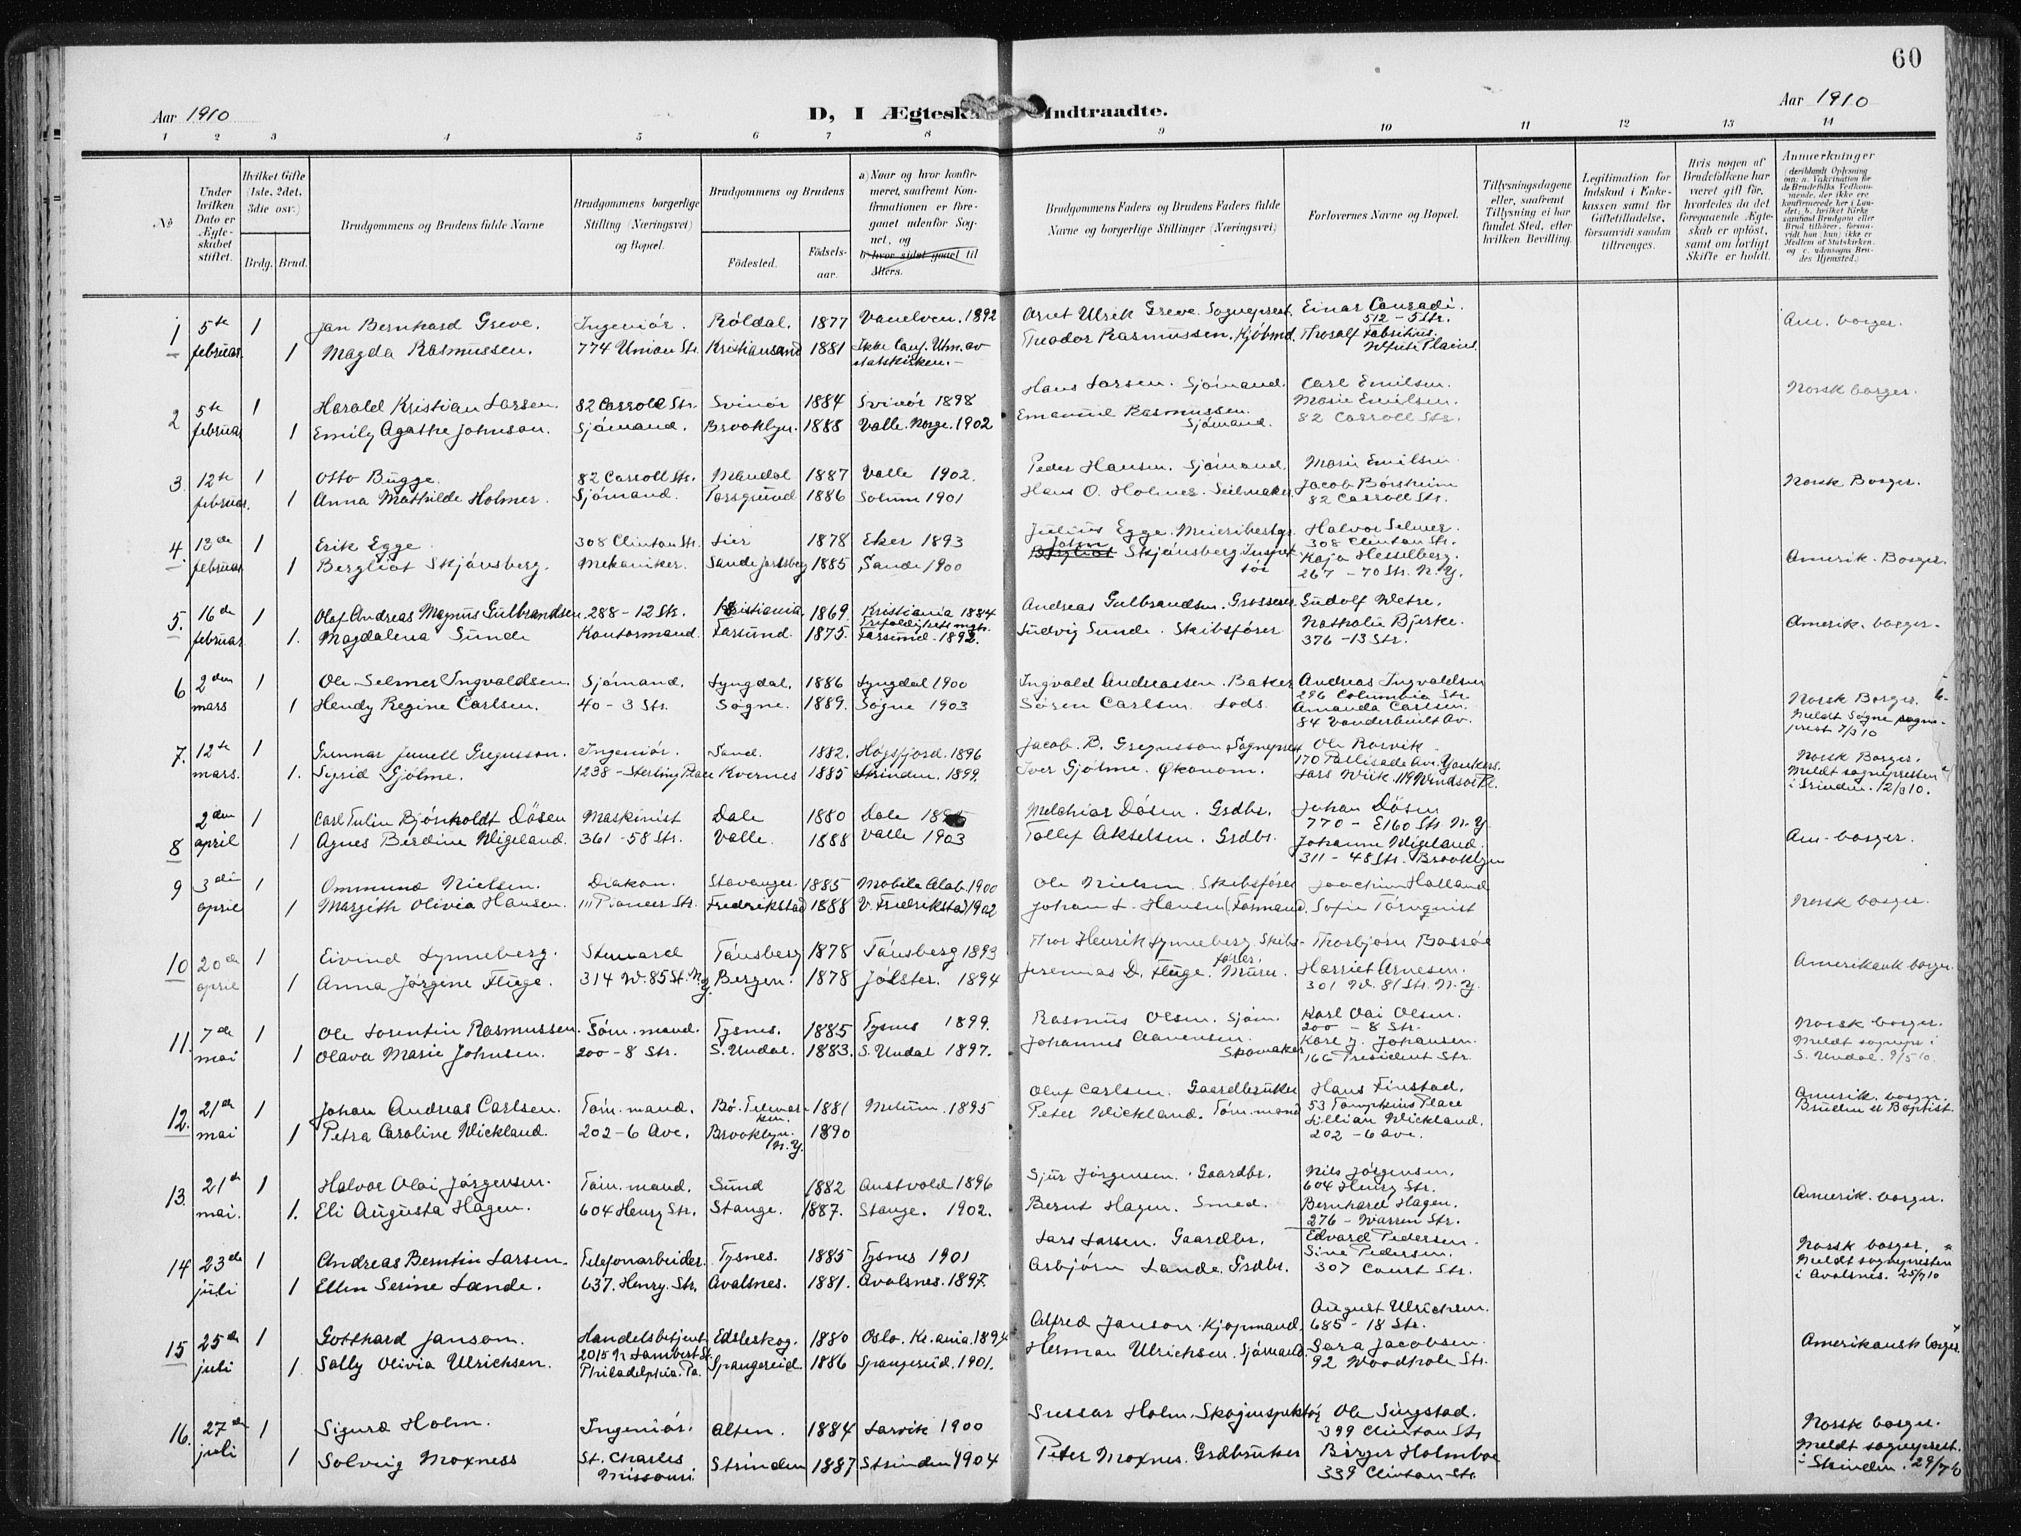 60
Aar 1910
D, I Ægtesk Indtraadte.
Aar 1910
1 2 3 4 5 6 7 8 9 10 11 12 13 14
No
Under hvilken Dato er Ægteskabet stiftet.
Hvilket Gifte (1ste, 2det, 3die osv.)
Brdg. Brud.
Brudgommens og Brudens fulde Navne
Brudgommens borgerlige Stilling (Næringsvei) og Bopæl.
Brudgommens og Brudens
Fødested. Fødselsaar.
a) Naar og hvor konfirmeret, saafremt Konfirmationen er foregaaet udenfor Sognet, og
b) hvor sidst gaaet til Alters.
Brudgommens Faders og Brudens Faders fulde Navne og borgerlige Stillinger (Næringsvei)
Forlovernes Navne og Bopæl.
Tillysningsdagene eller, saafremt Tillysning ei har fundet Sted, efter hvilken Bevilling.
Legitimation for Indskud i Enkekassen samt for Giftetilladelse, forsaavidt saadan tiltrænges.
Hvis nogen af Brudefolkene har været gift før, hvorledes da det foregaaende Ægteskab er opløst, samt om lovligt Skifte er holdt.
Anmerkninger (deriblandt Oplysning om: a. Vakcination for de Brudefolks Vedkommende, der ikke ere konfirmerede her i Landet; b. hvilket Kirkesamfund Brudgom eller Brud tilhører, forsaavidt han (hun) ikke er Medlem af Statskirken, og c. udensogns Brudes Hjemsted.)
1 5te 1 Jan Bernhard Greve. Ingeniör. Röldal. 1877 Vanelven. 1892 Arnt Ulrik Greve. Sogneprest. Einar Conradi. 512 - 5 Str. Am. borger.
februar 1 Magda Rasmussen. 774 Union Str. Kristiansand 1881 Ikke Conf. Utm. av statskirken.- Theodor Rasmussen. Kjöbmd. Thoralf Fabritius. White Plains.
2 5te 1 Harald Kristian Larsen. 82 Carroll Str. Svinör 1884 Svinör 1898 Hans Larsen. Sjömand. Carl Emilsen. Marie Emilsen. Norsk borger.
februar 1 Emily Agathe Johnson. Sjömand. Brooklyn. 1888 Valle. Norge. 1902 Emanuel Rasmussen. Sjömand. 82 Carroll Str.
3. 12te 1 Otto Bugge. 82 Carroll Str. Mandal 1887 Valle 1902. Peder Hansen. Sjömand. Marie Emilsen Norsk Borger.
februar. 1 Anna Mathilde Holmer. Sjömand. Porsgrund 1886 Solum 1901 Hans O. Holmer. Seilmaker. Jacob Børsheim 82 Carroll Str.
4. 13de 1 Erik Egge 308 Clinton Str. Lier 1878 Eker 1893 Julius Egge. Meieribestyr. Halvor Selmer. 308 Clinton Str. Amerik. Borger.
februar 1 Bergliot Skjönsberg. Mekaniker. Sande Jarlsberg 1885 Sande 1900 John Skjönsberg Inspektör Kaja Hesselberg. 267 - 70 Str. N.Y.
5. 16de 1 Olaf Andreas Magnus Gulbrandsen. 288 - 12 Str. Kristiania. 1869. Kristiania 1884 Andreas Gulbrandsen. Grosserer. Ludolf Wetre. Amerik. borger.
februar 1. Magdalena Sunde Kontormand. Farsund. 1875. Farsund. 1892. Ludvig Sunde. Skibsfører Nathalie Bjerke. 376 - 13 Str.
6 2den 1 Ole Selmer Ingvaldsen. Sjömand. Lyngdal. 1886 Lyngdal 1900 Ingvald Andreassen. Baker Andreas Ingvaldsen 296 Columbia Str. Norsk Borger.
mars 1 Hendy Regine Carlsen. 40 - 3 Str. Søgne. 1889. Søgne 1903 Sören Carlsen Lods. Amanda Carlsen. 84 Vanderbuilt Av. Meldt Søgne sogneprest 7/3 10
7. 12te 1 Gunnar Junell Gregusson. Ingeniør. Sand. 1882. Høgsfjord. 1896 Jacob. B. Gregusson Sogneprest Ole Rorvik 170 Pallisade Av. Yonkers. Norsk Borger.
mars. 1. Sigrid Gjölme. 1238 - Sterling Place Kvernes 1885 Strinden. 1899. Iver Gjölme. Økonom. Lars Wiik. 119 Windsor Pl. Meldt sognepresten i Strinden. 12/3 10.
2den 1 Carl Tulin Bjönholdt Dösen Maskinist Dale 1880 Dale Melchior Dösen. Grdbr. Johan Dösen 770 - E160 Str. N.Y.
8 april 1 Agnes Berdine Wigeland. 361 - 58 Str. Valle. 1888 Valle 1903 Tollef Akselsen. Grdbr. Johanne Wigeland. 311 - 48 Str. Brooklyn Am. borger.
9 3die 1 Ommund Nielsen. Diakon. Stavanger 1885 Mobile Alab. 1900 Ole Nielsen Skibsfører Joachim Halland
april 1 Margith Olivia Hansen. 111 Pioneer Str. Fredrikstad 1888 V. Fredrikstad 1902 Johan L. Hansen (Formand. Sofie Törnquist Norsk borger.
10 20de 1 Eivind Lynneberg. Steward Tönsberg 1878 Tönsberg 1893 Thor Henrik Lynneberg. Skibsförer. Thorbjörn Bassöe Amerikansk borger
april 1 Anna Jørgene Fluge. 314 W. 85 St. N.Y. Bergen. 1878 Jølster. 1894 Jeremias D. Fluge. Murer. Harriet Arnesen. 301 W. 81 Str. N.Y.
11. 7de 1 Ole Lorentin Rasmussen. Töm. mand. Tysnes. 1885 Tysnes 1899. Rasmus Olsen. Sjöm. Karl Oai Olsen. 200 - 8 Str. Norsk borger.
mai 1 Olava Marie Johnsen. 200 - 8 Str. S. Undal. 1883. S. Undal 1897. Johannes Aanensen. Skomaker Karl J. Johansen. 166 President Str. Meldt sognepr i S. Undal. 9/5 10.
12. 21de 1 Johan Andreas Carlsen. Töm. mand. Bø. Telemarken. 1881 Melum. 1895 Oluf Carlsen. Gaardbruker Hans Finstad. 53 Tompkins Place Amerik. borger. Bruden er Baptist.
mai 1 Petra Caroline Wickland. 202 - 6 Ave. Brooklyn. N.Y. 1890 Peter Wickland. Töm. mand Lillian Wickland. 202 - 6 ave.
13. 21de 1 Halvor Olai Jörgensen. Töm. mand. Sund 1882 Austvold 1896 Sjur Jörgensen. Gaardbr. Nils Jörgensen. 604 Henry Str. Amerik. borger.
mai. 1. Eli Augusta Hagen. 604 Henry Str. Stange. 1887. Stange. 1902. Bernt Hagen. Smed. Bernhard Hagen. 276 - Warren Str.
14 23de 1 Andreas Berntin Larsen. Telefonarbeider. Tysnes. 1885 Tysnes 1901 Lars Larsen. Gaardbr. Edvard Pedersen. Sine Pedersen. Norsk borger.
juli 1 Ellen Serine Lande. 637. Henry. Str. Avalsnes. 1881. Avalsnes. 1897. Asbjörn Lande. Grdbr. 307 Court Str. Meldt sognepresten i Avalsnes. 25/7 10
15 25de 1 Gotthard Janson. Handelsbetjent Edsleskog. 1880 Oslo. Kr.ania. 1894 Alfred Janson. Kjöpmand. August Ulrichsen. 685 - 18 Str. Amerikansk borger
juli 1 Sally Olivia Ulrichsen. 2015 N. Lambert St. Philadelphia. Pa. Spangereid. 1886 Spangereid. 1901. Herman Ulrichsen. Sjömand. Sara Jacobsen. 92 Woodhole Str.
16. 27de 1 Sigurd Holm. Ingeniör. Alten. 1884 Larvik 1900 Holm. Skoginspektör Ole Singstad. 399 Clinton Str. Norsk borger.
juli 1 Solveig Moxness St. Charles Missouri. Strinden 1887 Strinden 1904 Peter Moxnes. Grdbruker Birger Holmboe 339 Clinton Str. Meldt sogneprest. i Strinden.